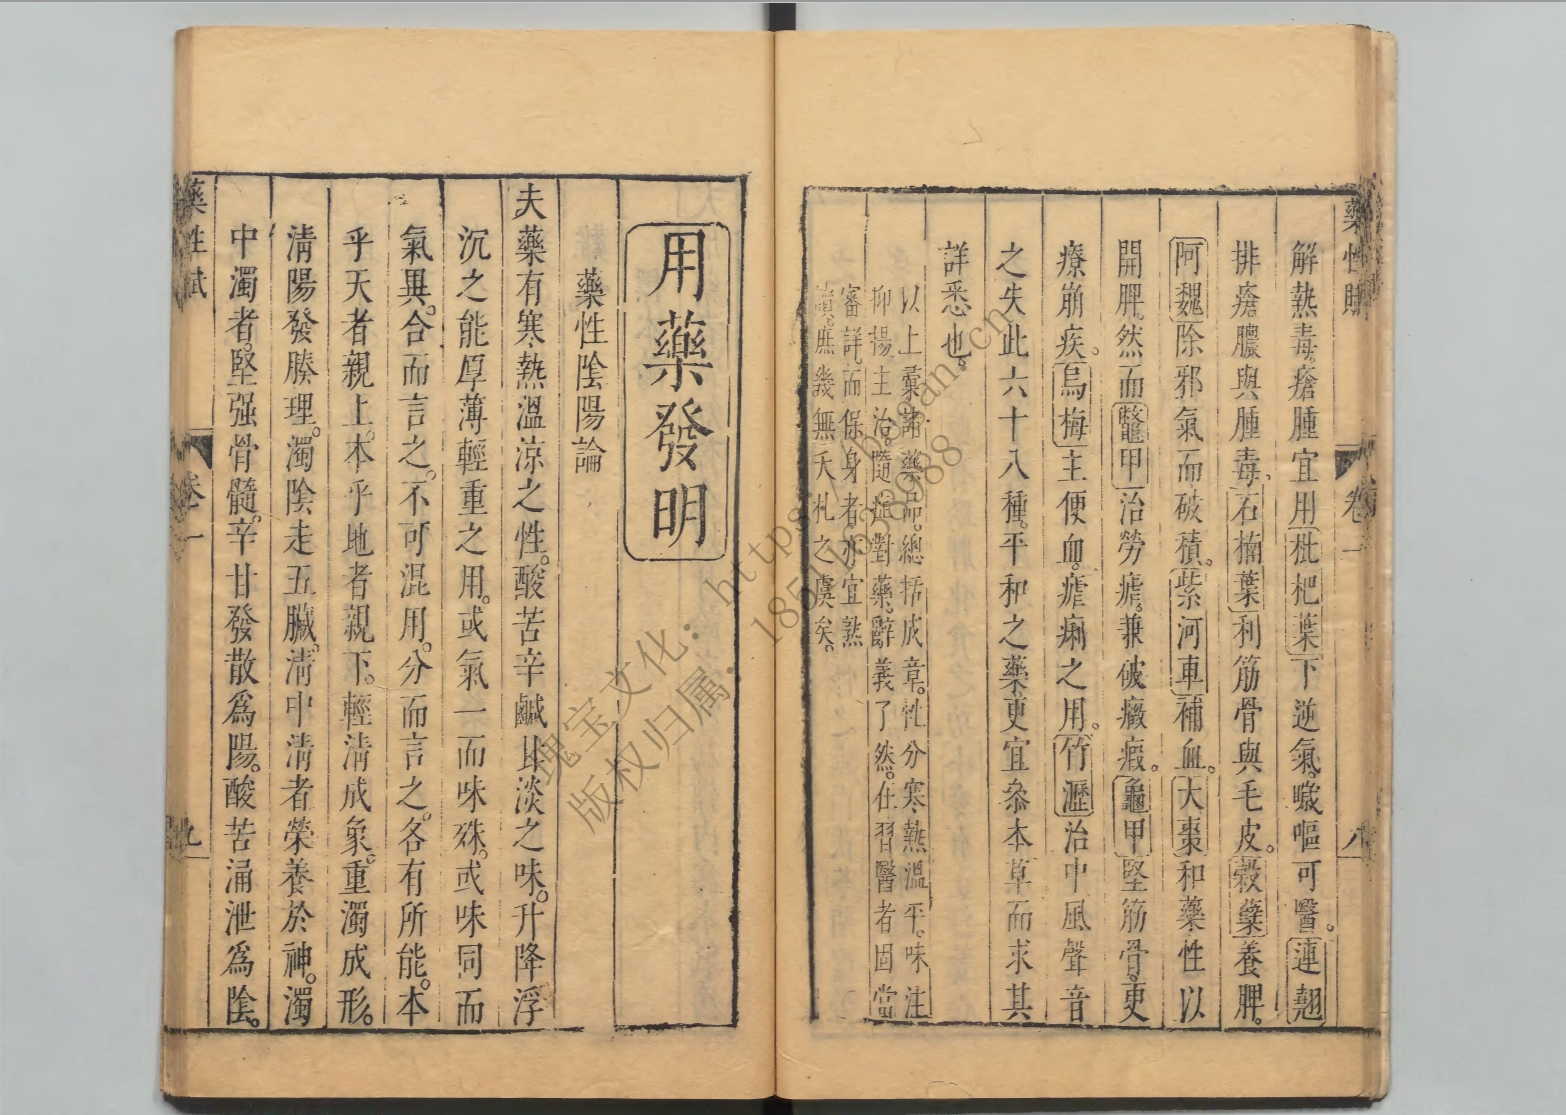 藥性賦 卷一 八
解熱毒瘡腫宜用枇杷葉下逆氣噦嘔可醫。連翹
排瘡膿與腫毒。石楠葉利筋骨與毛皮。穀蘗養脾。
阿魏除邪氣而破積。紫河車補血。大棗和藥性以
開脾。然而鼈甲治勞瘧。兼破癥瘕。龜甲堅筋骨。更
療崩疾。烏梅主便血。瘧痢之用。竹瀝治中風聲音
之失此六十八種。平和之藥更宜叅本草而求其
詳悉也。
以上藁諸藥品。總括成章。性分寒熱溫平。味注
抑揚主治。隨症對藥。辭義了然。仕習醫者固當
審詳。而保身者亦宜熟
讀。庶幾無夭札之虞矣。
用藥發明
藥性陰陽論
夫藥有寒熱溫涼之性。酸苦辛鹹甘淡之味。升降浮
沉之能厚薄輕重之用。或氣一而味殊。或味同而
氣異。合而言之。不可混用。分而言之。各有所能。本
乎天者親上。本乎地者親下。輕清成象。重濁成形。
清陽發腠理。濁陰走五臟。清中清者榮養於神。濁
中濁者。堅强骨髓。辛甘發散爲陽。酸苦涌泄爲陰。
藥性賦 卷一 九
瑰宝文化：https://lbguan.cn
版权归属：18511638988